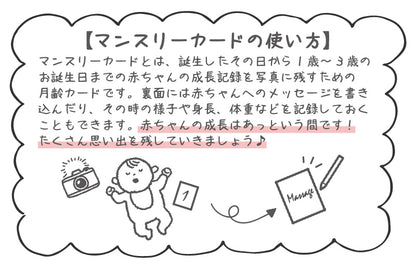 【マンスリーカードの使い方】
マンスリーカードとは、誕生したその日から1歳〜3歳の
お誕生日までの赤ちゃんの成長記録を写真に残すための
月齢カードです。裏面には赤ちゃんへのメッセージを書き
込んだり、その時の様子や身長、体重などを記録しておく
こともできます。赤ちゃんの成長はあっという間です！
たくさん思い出を残していきましょう♪
1
Massage